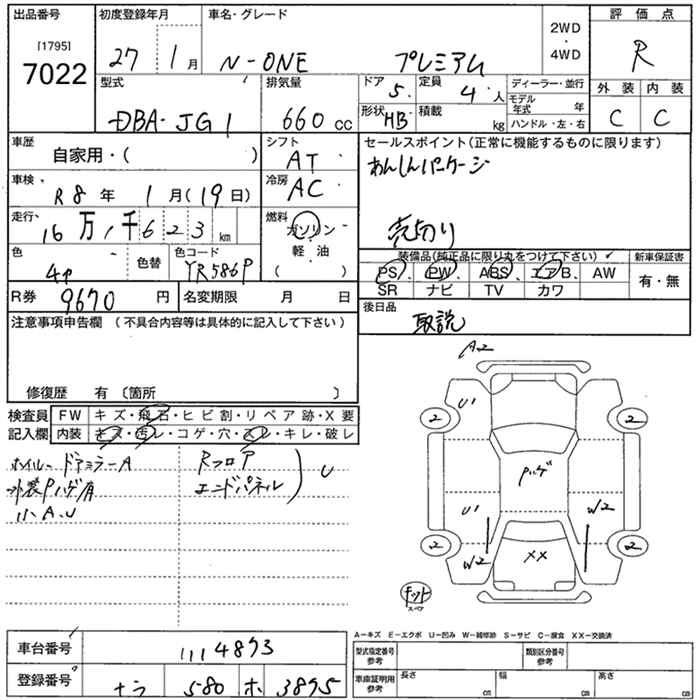 出品番号 初度登録年月 車名・グレード 評価点
[1795] 7022 27 1月 N-ONE プレミアム 2WD・4WD R
型式 排気量 ドア 5 定員 4人 ディーラー・並行 外装 内装
DBA-JG1 660cc 形状 HB 積載 kg モデル年式 年 ハンドル・左・右 C C
車歴 シフト セールスポイント(正常に機能するものに限ります)
自家用・( ) AT あんしんパッケージ
車検 R8年 1月(19日) 冷房 AC
走行 16万1千623km 燃料 ガソリン 軽油 ( ) 売切り
色 色替 色コード YR586P
装備品(純正品に限り丸をつけて下さい) 新車保証書
PS PW ABS エアB AW 有・無
SR ナビ TV カワ
R券 9670円 名変期限 月 日 後日品
取説
注意事項申告欄(不具合内容等は具体的に記入して下さい)
修復歴 有〔箇所 〕
検査員 FW キズ・飛石・ヒビ割・リペア跡・X要
記入欄 内装 キズ・汚レ・コゲ・穴・スレ・キレ・破レ
ホイール ドアミラーA Rフロア
外装Pハゲ有 エンドパネル U
小A、U
A2
U1
2 2
Pハゲ
U1 W2
2 2
W2 XX
キット
スペア
A-キズ E-エクボ U-凹み W-補修跡 S-サビ C-腐食 XX-交換済
車台番号 1114893 型式指定番号 参考 類別区分番号 参考
登録番号 ナラ 580 ホ 3895 車庫証明用 参考 長さ cm 幅 cm 高さ cm